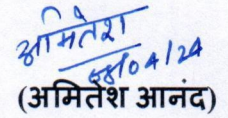 अमितेश
08/04/24
(अमितेश आनंद)